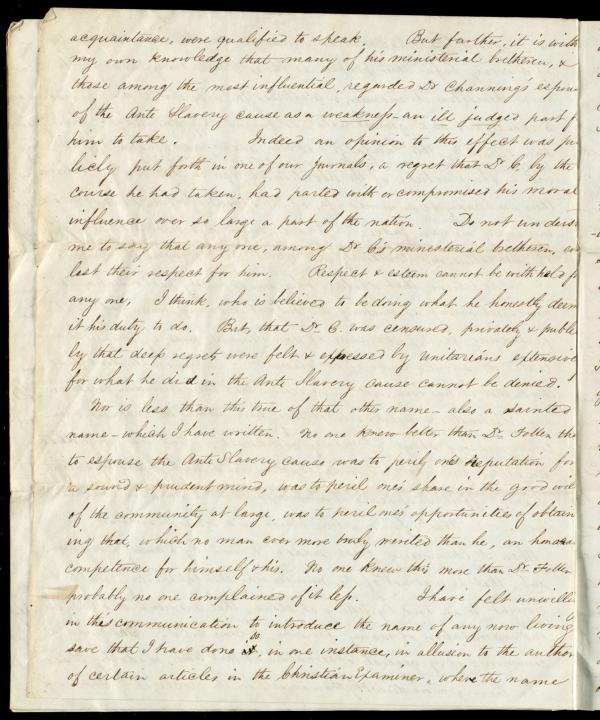 acquaintance, were qualified to speak. But farther, it is with
my own knowledge that many of his ministerial bretheren, &
those among the most influential, regarded Dr Channing's espou
of the Anti Slavery cause as a weakness - an ill judged part f
him to take. Indeed an opinion to this effect was pu
licly put forth in one of our Journals, a regret that Dr C. by the
course he had taken, had parted with or compromised his moral
influence over so large a part of the nation. Do not unders
me to say that any one, among Dr C's ministerial bretheren, ev
lost their respect for him. Respect & esteem cannot be withheld f
any one, I think, who is believed to be doing what he honestly deem
it his duty to do. But, that Dr. C. was censured, privately & publi
ly that deep regrets were felt & expressed by Unitarians extensive
for what he did in the Anti Slavery cause cannot be denied.
Nor is less than this true of that other name - also a sainted
name - which I have written. No one knew better than Dr. Follen tha
to espouse the Anti Slavery cause was to peril one's reputation for
a sound & prudent mind, was to peril one's share in the good will
of the community at large, was to peril one's opportunities of obtain
ing that, which no man ever more truly merited than he, an honora
competence for himself & his. No one knew this more than Dr. Follen
probably no one complained of it less. I have felt unwillin
in this communication to introduce the name of any now living
save that I have done so, in one instance, in allusion to the author
of certain articles in the Christian Examiner, where the name